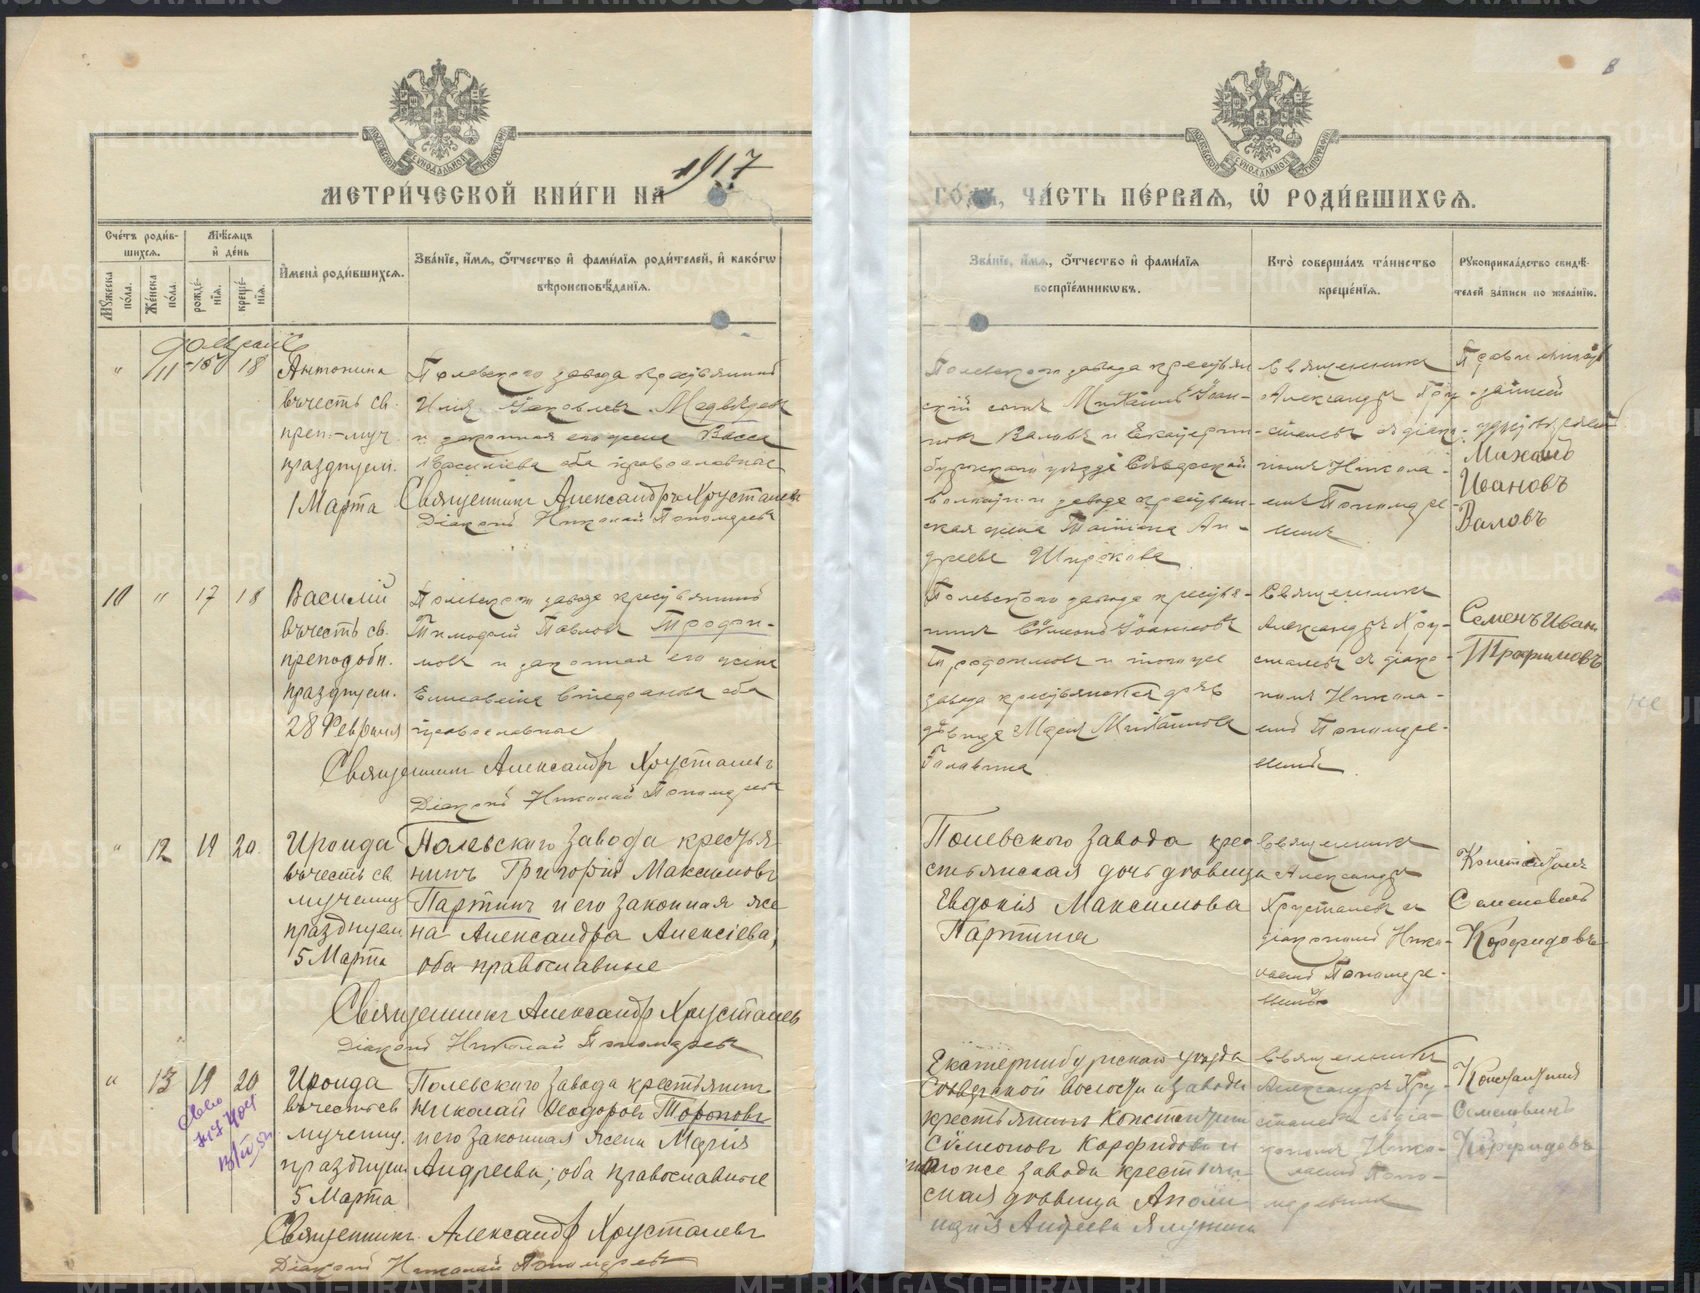 МЕТРИ́ЧЕСКОЙ КНИ́ГИ НА 1917
ГО́ДЪ, ЧА́СТЬ ПЕ́РВАѦ, Ѡ҆ РОДИ́ВШИХСѦ.
8
Сче́тъ роди́в-
шихсѧ.
Мѣ́сѧцъ
и҆ де́нь
Мꙋ́жеска по́ла.
Же́нска по́ла.
рожде́-нїѧ.
креще́-нїѧ.
И҆мена̀ роди́вшихсѧ.
Зва́нїе, и҆́мѧ, ѻ҆́тчество и҆ фами́лїѧ роди́телей, и҆ како́гѡ
вѣроисповѣ́данїѧ.
Зва́нїе, и҆́мѧ, ѻ҆́тчество и҆ фами́лїѧ
воспрїе́мникѡвъ.
Кто̀ соверша́лъ та́инство
креще́нїѧ.
Рꙋкоприкла́дство свидѣ́-
телей за́писи по жела́нїю.
Февраль
" 11 15 18
Антонина
въ честь св.
преп.-муч.
празднуем.
1 Марта
Полевского завода крестьянинъ
Илія Іаковлевъ Медвѣдевъ
и законная его жена Васса
Василіева оба православные
Священникъ Александръ Хрусталевъ
Діаконъ Николай Пономаревъ
Полевского завода крестьян
скій сынъ Михаилъ Іоан-
новъ Валовъ и Екатерин-
бургскаго уѣзда Сѣверской
волости и завода крестьян-
ская жена Татіана Ан-
дреева Широкова
Священникъ
Александръ Хру-
сталевъ съ діако-
номъ Никола-
емъ Пономаре-
вымъ
Михаилъ
Ивановъ
Валовъ
10 " 17 18
Василій
въ честь св.
преподобн.
празднуем.
28 Февраля
Полевского завода крестьянинъ
Тимофей Павловъ Трофи-
мовъ и законная его жена
Елисавета Стефанова оба
православные
Священникъ Александръ Хрусталевъ
Діаконъ Николай Пономаревъ
Полевского завода крестья-
нинъ Сѵмеонъ Іоанновъ
Трофимовъ и того же
завода крестьянская
дѣвица Марія Михаилова
Талашка
Священникъ
Александръ Хру-
сталевъ съ діако-
номъ Никола-
емъ Пономаре-
вымъ
Семенъ Иван
Трофимовъ
" 12 19 20
Ираида
въ честь св.
мучениц
празднуем.
5 Марта
Полевскаго завода крестья-
нинъ Григорій Максимовъ
Партинъ и его законная же
на Александра Алексіева,
оба православные
Священникъ Александръ Хрусталевъ
Діаконъ Николай Пономаревъ
Полевского завода кре
стьянская дочь дѣвица
Евдокія Максимова
Партина
Священникъ
Александръ
Хрусталевъ съ
діакономъ Нико-
лаемъ Пономаре-
вымъ
Константинъ
Семеновичъ
Корфидовъ
" 13 19 20
Ираида
въ честь св
мучениц.
празднуем
5 Марта
Полевскаго завода крестьянин
Николай Ѳеодоровъ Тороповъ
и его законная жена Марія
Андреева; оба православные
Священникъ Александръ Хрусталевъ
Діаконъ Николай Пономаревъ
Екатеринбургскаго уѣзда
Сѣверской волости и завода
крестьянинъ Константинъ
Сѵмеоновъ Корфидовъ и
того же завода крестьян
ская дѣвица Аполи
нарія Андреева Ялунина
Священникъ
Александръ Хру-
сталевъ съ діа-
кономъ Нико-
лаемъ Поно-
маревымъ
Константинъ
Семеновичъ
Корфидовъ
METRIKI.GASO-URAL.RU